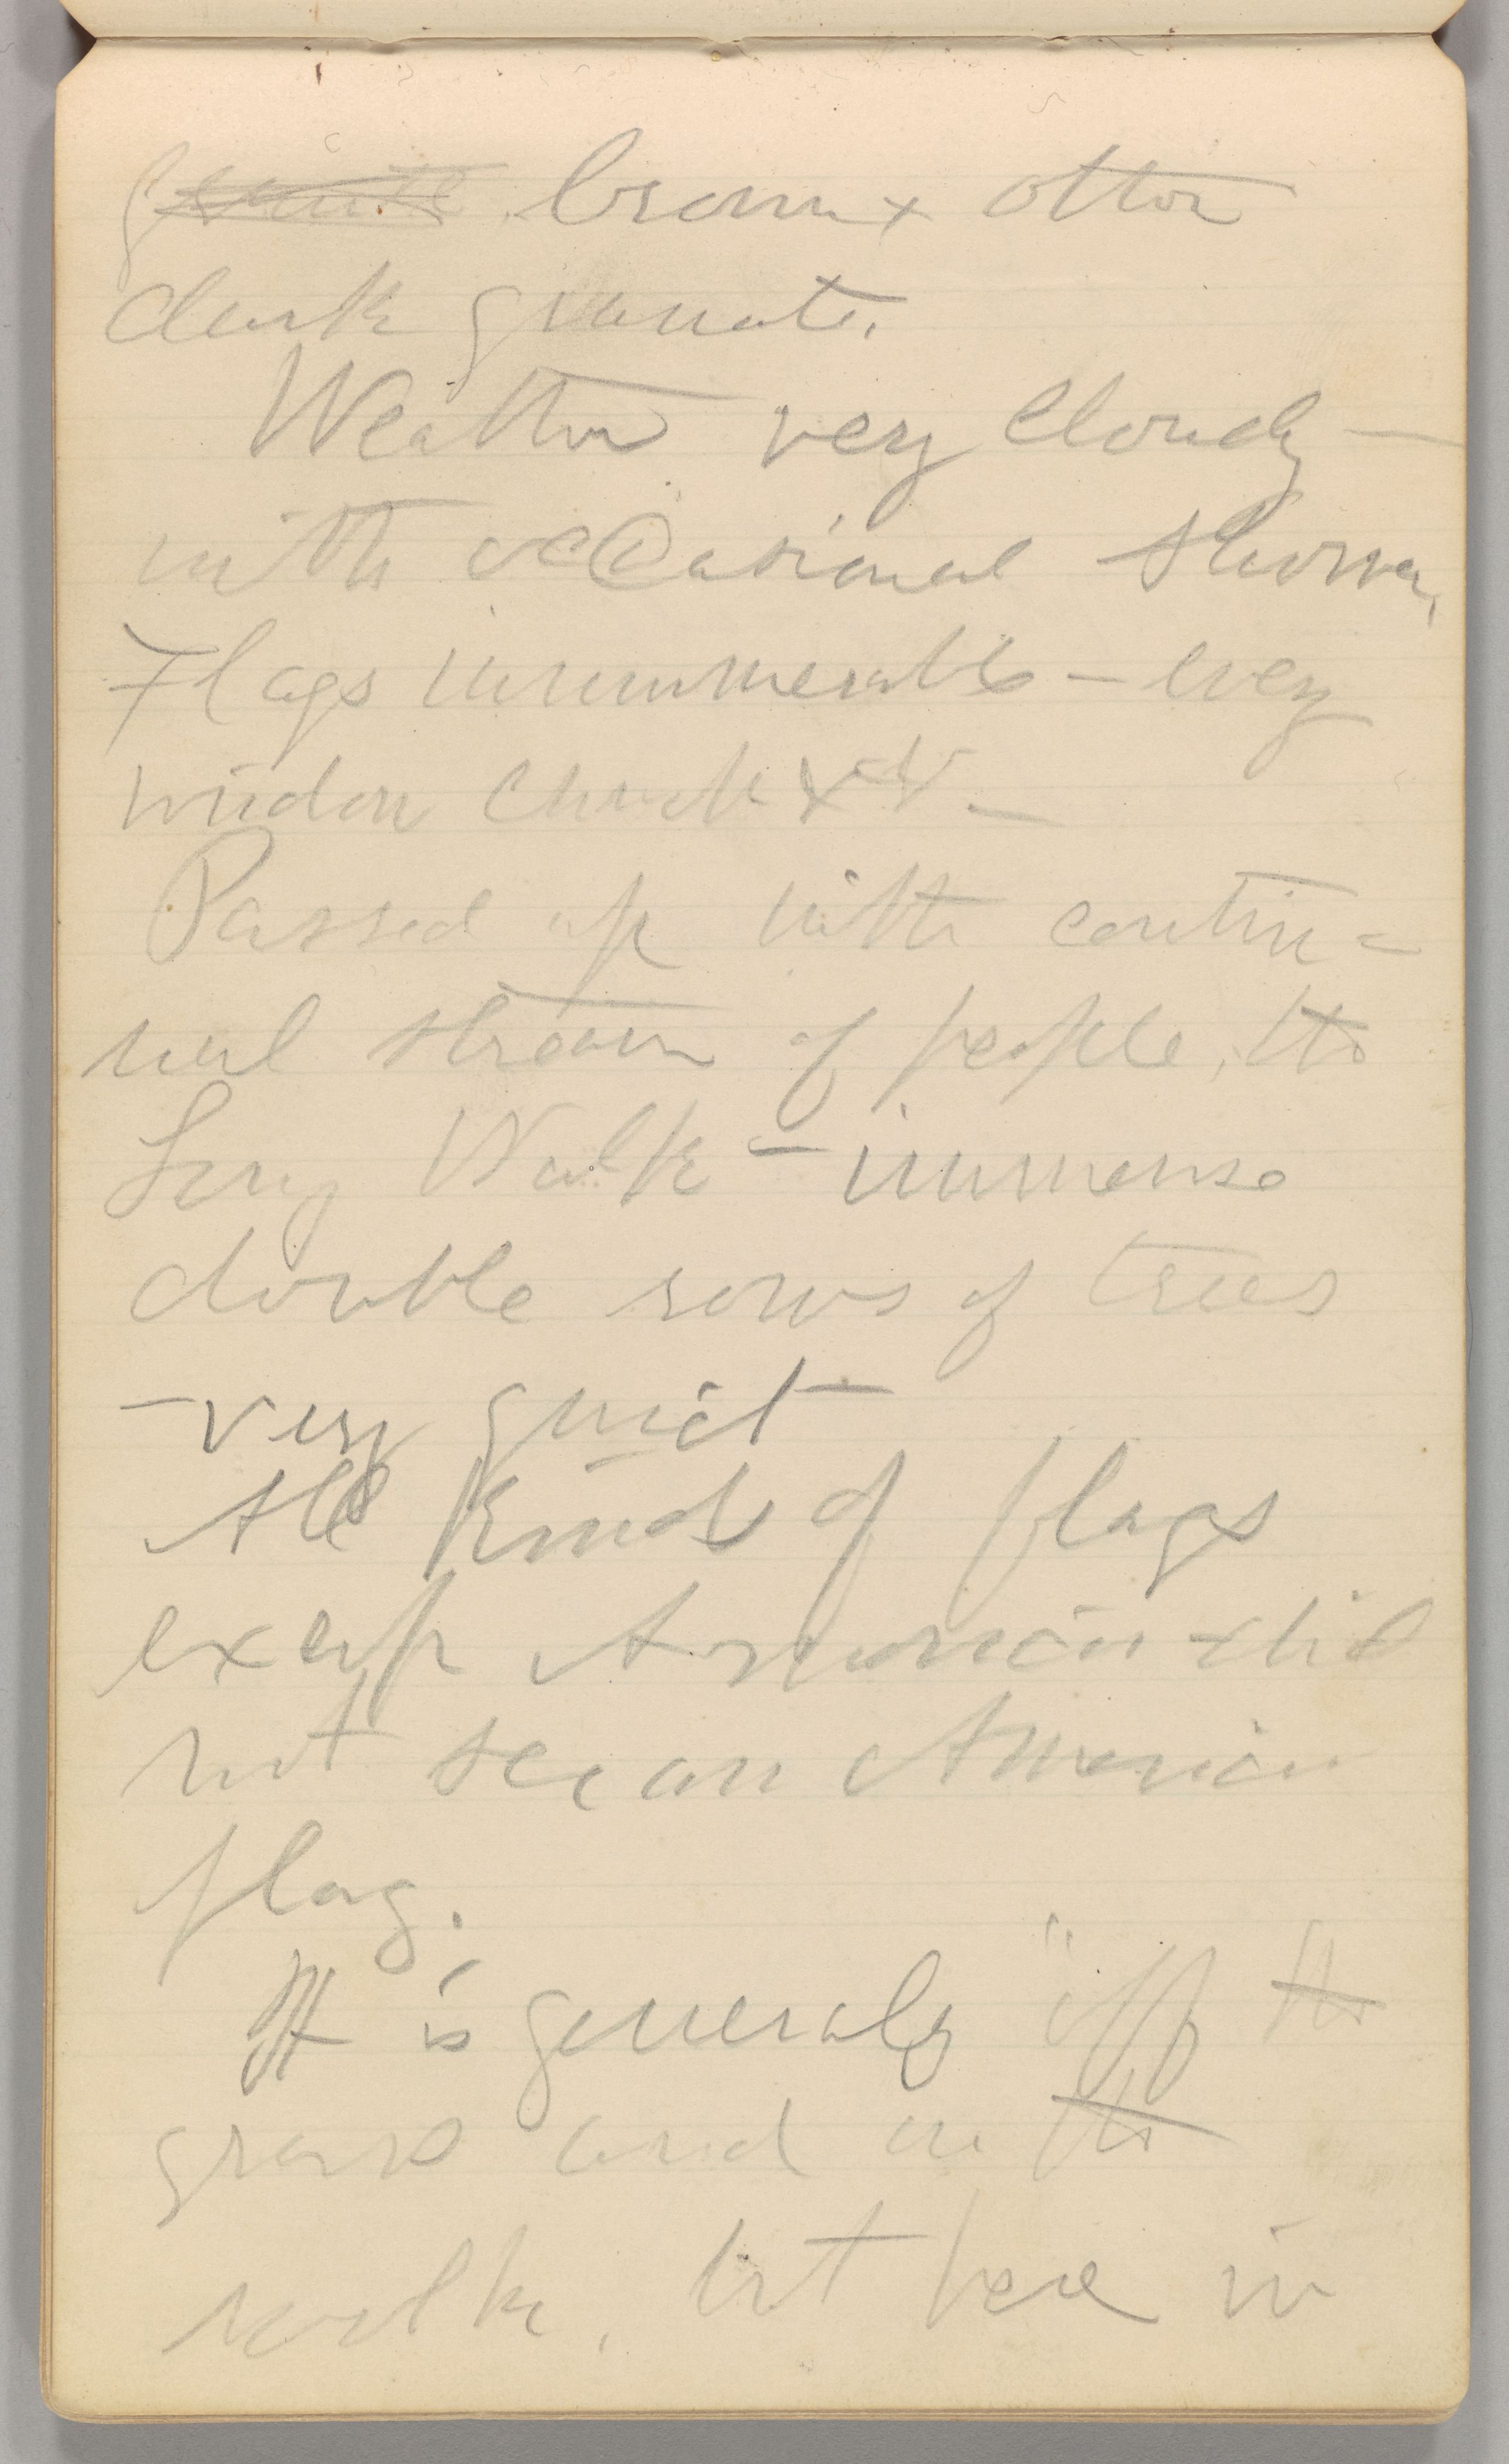 granite brown & other
dark granite.
Weather very cloudy —
with occasional shower,
Flags innumerable — every
window church &c —
Passed up with contin=
ual stream of people, the
Long Walk — immense
double rows of trees
— very quiet —
All kinds of flags
except American — did
not see an American
flag.
It is generally "off the
grass and on the
walk, but here in